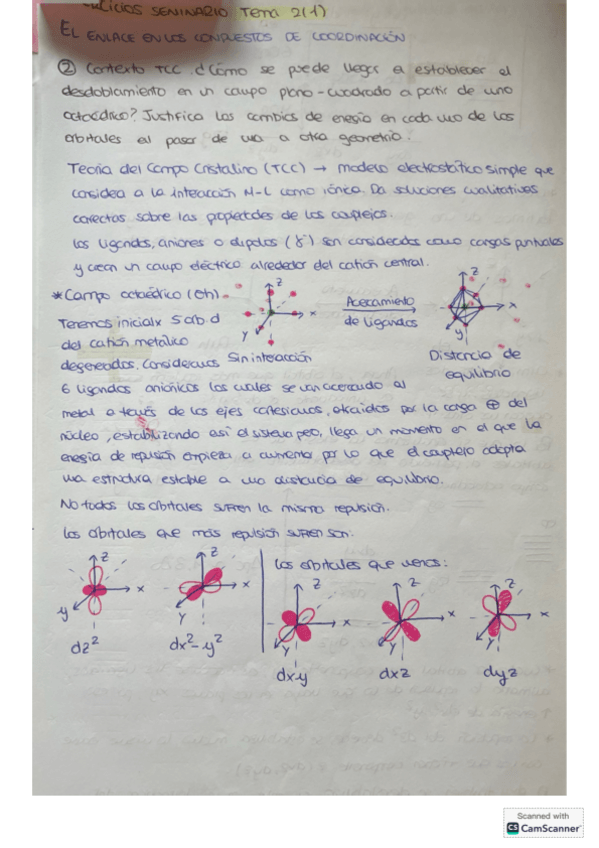 SEMINARIO Tema 2(1)
EL ENLACE EN LOS COMPUESTOS DE COORDINACIÓN
② Contexto TCC. ¿Cómo se puede llegar a establecer el
desdoblamiento en un campo plano-cuadrado a partir de uno
octaédrico? Justifica los cambios de energía en cada uno de los
orbitales al pasar de una a otra geometría.
Teoría del Campo Cristalino (TCC) → modelo electrostático simple que
considea a la interacción M-L como iónica. Da soluciones cualitativas
correctas sobre las propiedades de los complejos.
Los ligandos, aniones o dipolos (γ⁻) son considerados como cargas puntuales
y crean un campo eléctrico alrededor del catión central.
* Campo octaédrico (Oh).
z
x
y
Acercamiento
de ligandos
z
x
y
Tenemos inicialx 5 orb. d
del catión metálico
degenerados. Consideramos
Sin interacción
Distancia de
equilibrio
6 ligandos aniónicos los cuales se van acercando al
metal a través de los ejes cartesianos, atraídos por la carga ⊕ del
núcleo, estabilizando así el sistema pero, llega un momento en el que la
energía de repulsión empieza a aumentar por lo que el complejo adopta
una estructura estable a una distancia de equilibrio.
No todos los orbitales sufren la misma repulsión.
Los orbitales que más repulsión sufren son:
Los orbitales que menos:
z
x
y
dz²
z
x
y
dx²-y²
z
x
y
dxy
z
x
y
dxz
z
x
y
dyz
Scanned with
CS CamScanner